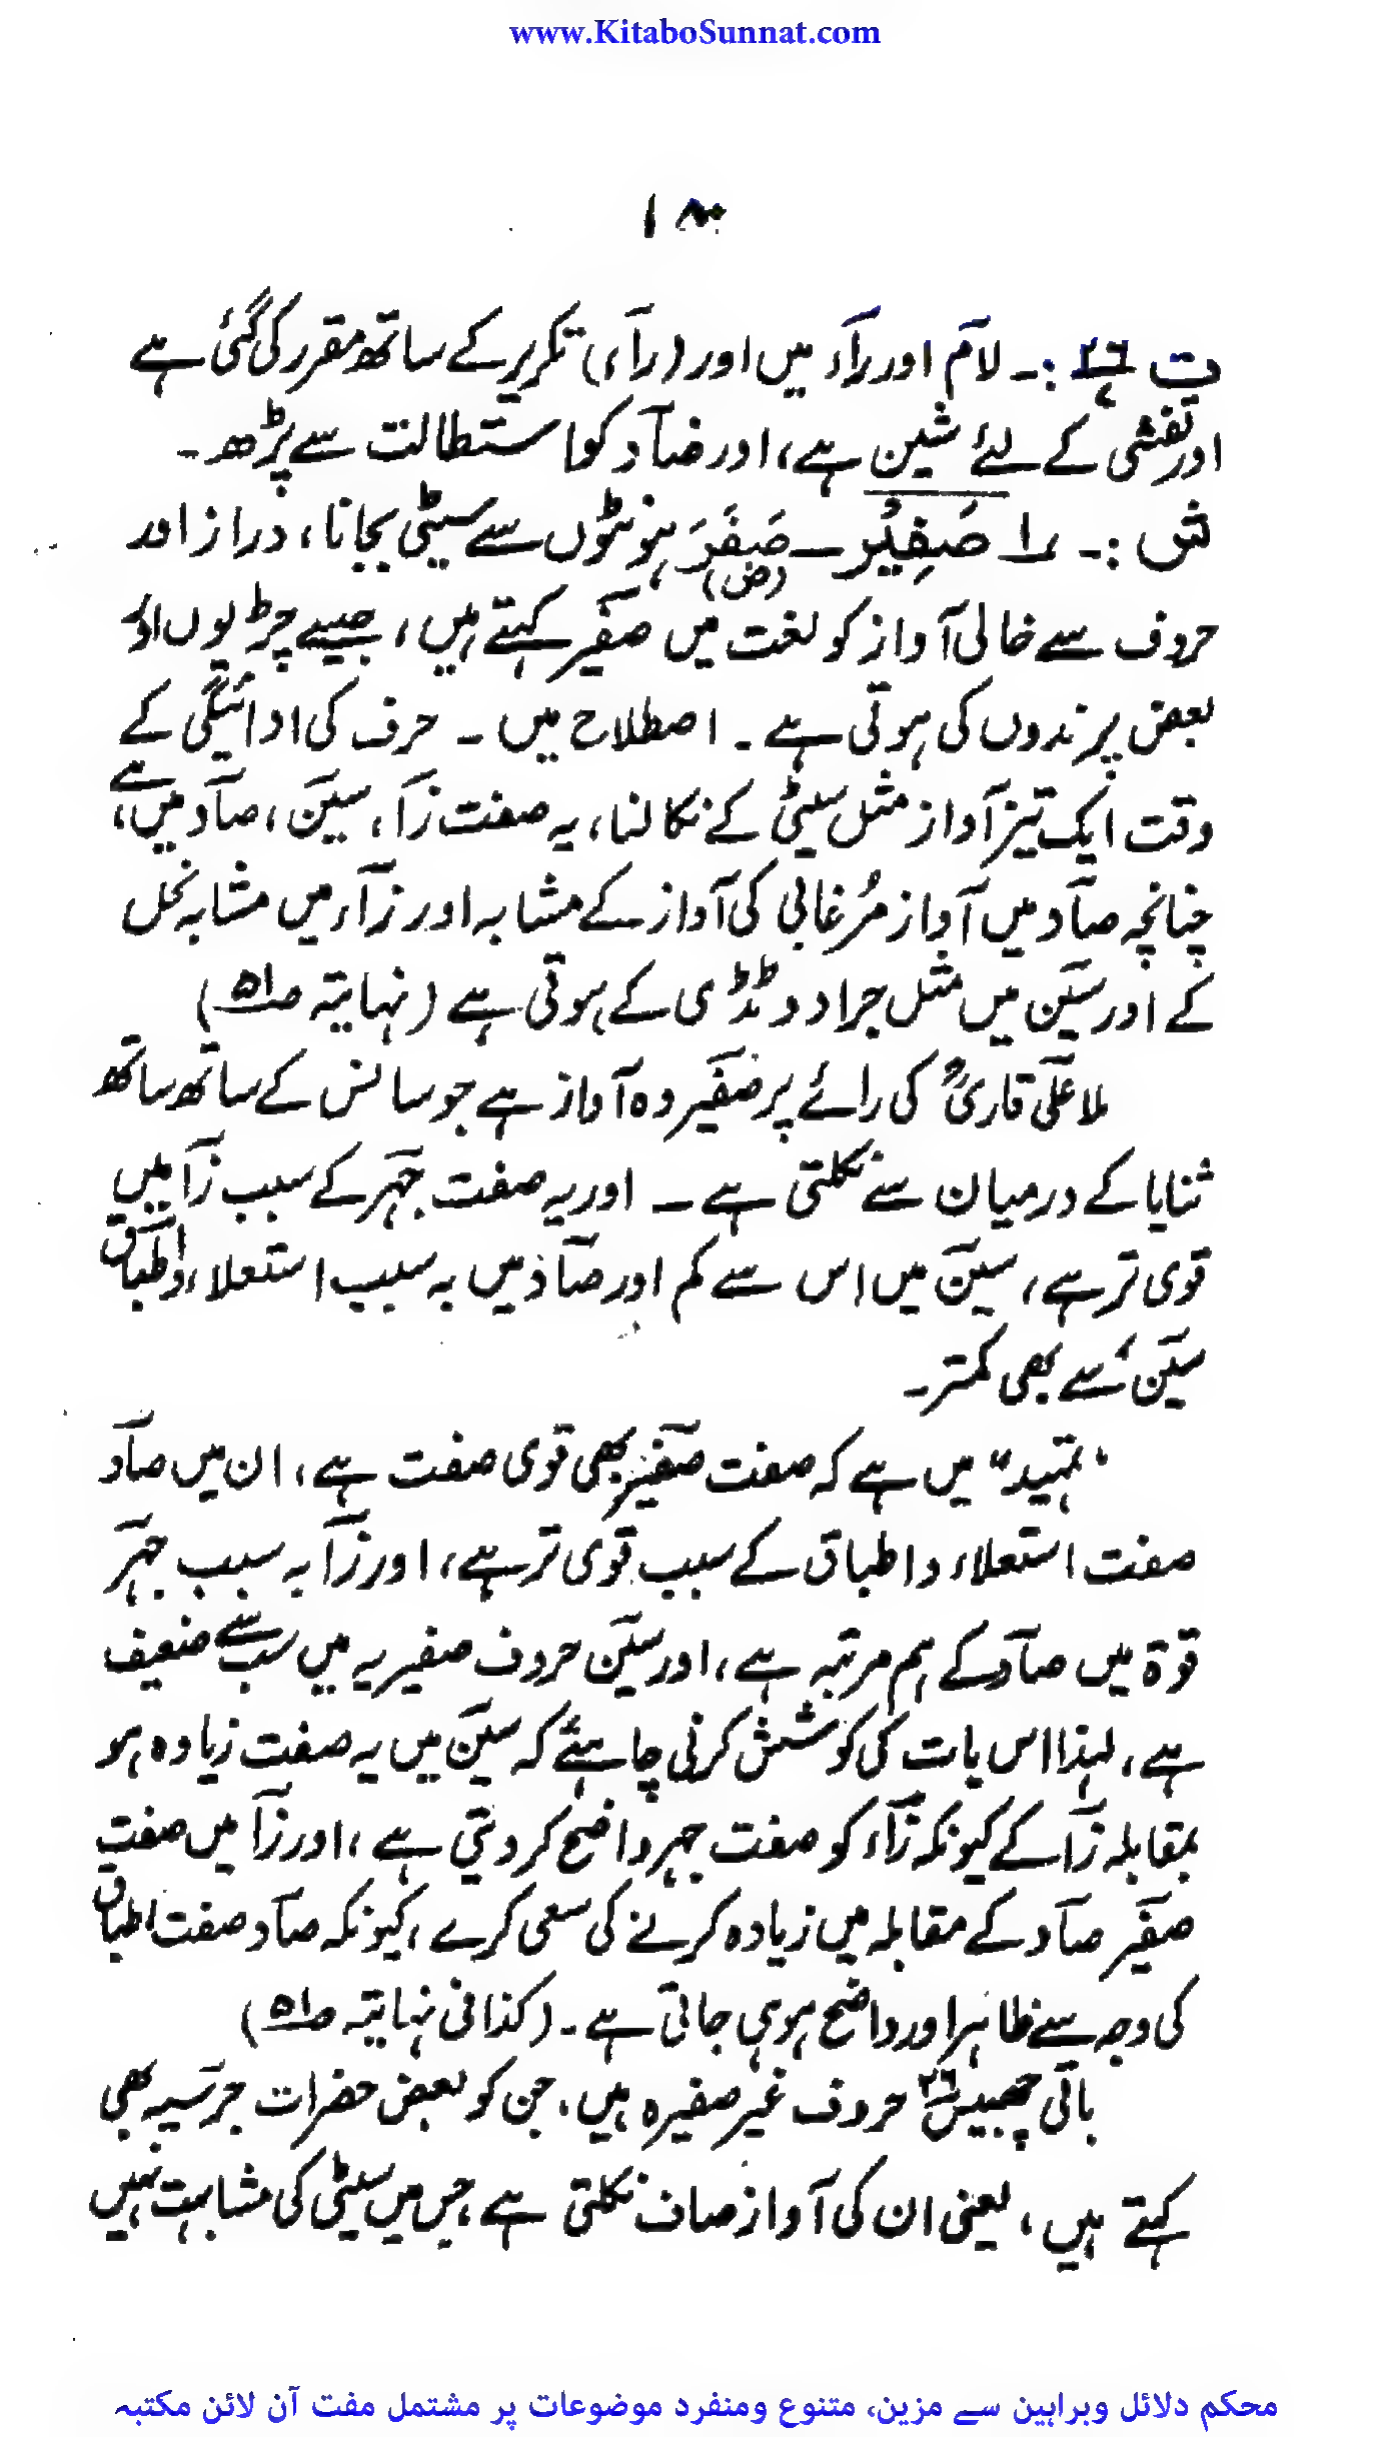 www.KitaboSunnat.com
ت ۲۶ :۔ لامؔ اور راؔء میں اور (راؔء) تکریر کے ساتھ مقرر کی گئی ہے
اور تفشی کے لئے شین ہے، اور ضاؔد کو استطالت سے پڑھ۔
ش :۔ ۱ صَفِیْر — صَفَرَ (ض) ہونٹوں سے سیٹی بجانا، دراز اور
حروف سے خالی آواز کو لغت میں صفیؔر کہتے ہیں، جیسے چڑیوں اور
بعض پرندوں کی ہوتی ہے۔ اصطلاح میں۔ حرف کی ادائیگی کے
وقت ایک تیز آواز مثل سیٹی کے نکالنا، یہ صفت زاؔ، سینؔ، صاؔد میں ہے،
چنانچہ صاؔد میں آواز مُرغابی کی آواز کے مشابہ اور زاؔء میں مشابہ نحل
کے اور سیؔن میں مثل جراد و ٹڈی کے ہوتی ہے (نہایتہ صـ۵۱)
ملا علیؔ قاریؒ کی رائے پر صفیؔر وہ آواز ہے جو سانس کے ساتھ ساتھ
ثنایا کے درمیان سے نکلتی ہے — اور یہ صفت جہؔر کے سبب زاؔ میں
قوی تر ہے، سینؔ میں اس سے کم اور صاؔد میں بہ سبب استعلاء و اطباق
سیؔن سے بھی کمتر۔
"تمہید" میں ہے کہ صفت صفیؔر بھی قوی صفت ہے، ان میں صاؔد
صفت استعلاء و اطباق کے سبب قوی تر ہے، اور زاؔ بہ سبب جہؔر
قوۃ میں صاؔد کے ہم مرتبہ ہے، اور سیؔن حروف صفیریہ میں سب سے ضعیف
ہے، لہذا اس بات کی کوشش کرنی چاہئے کہ سیؔن میں یہ صفت زیادہ ہو
بمقابلہ زاؔ کے کیونکہ زاؔء کو صفت جہر واضح کر دیتی ہے، اور زاؔ میں صفت
صفیؔر صاؔد کے مقابلہ میں زیادہ کرنے کی سعی کرے، کیونکہ صاؔد صفت اطباق
کی وجہ سے ظاہر اور واضح ہو ہی جاتی ہے۔ (کذا فی نہایتہ صـ۵۱)
باقی چھبیس ۲۶ حروف غیر صفیرہ ہیں، جن کو بعض حضرات جرسیہ بھی
کہتے ہیں، یعنی ان کی آواز صاف نکلتی ہے، جس میں سیٹی کی مشابہت نہیں
محکم دلائل وبراہین سے مزین، متنوع ومنفرد موضوعات پر مشتمل مفت آن لائن مکتبہ